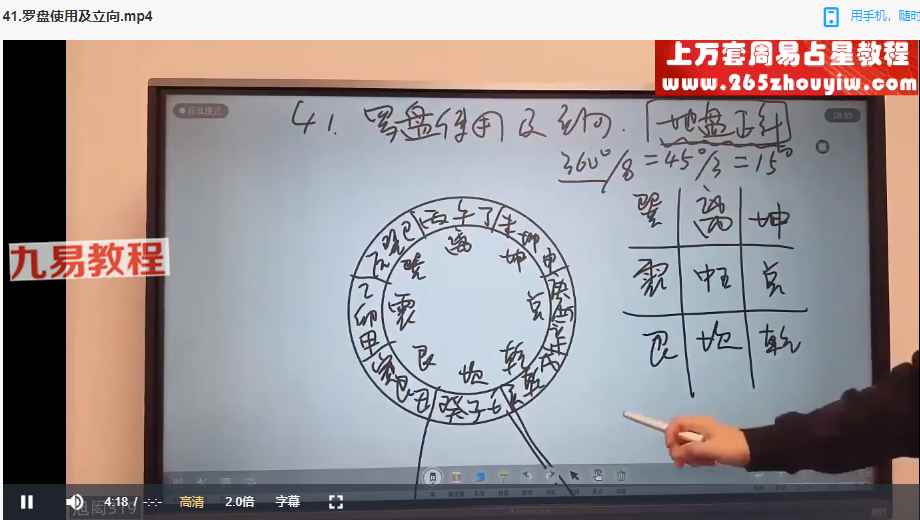 41.罗盘使用及立向.mp4
用手机，随时
上万套周易占星教程
www.265zhouyiw.com
41. 罗盘使用及立向. 地盘正针
360°/8=45°/3=15°
九易教程
巽 離 坤
震 中 兑
艮 坎 乾
巽 巳 丙 午 丁 未 坤 申
離
巽 坤
乙 卯 甲
震 兑
艮 乾
坎
癸 子 壬
4:18 / -:-
高清
2.0倍
字幕